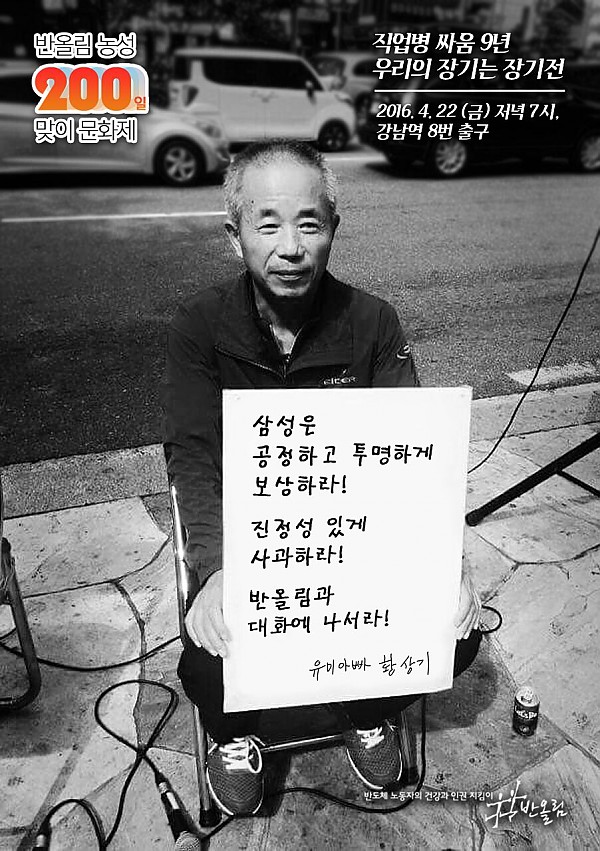 반올림 농성
200일
맞이 문화제
직업병 싸움 9년
우리의 장기는 장기전
2016. 4. 22 (금) 저녁 7시,
강남역 8번 출구
삼성은
공정하고 투명하게
보상하라!
진정성 있게
사과하라!
반올림과
대화에 나서라!
유미아빠 황상기
반도체 노동자의 건강과 인권 지킴이
반올림